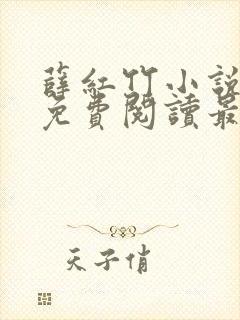 薛紅竹小說
免費閱讀最
天子俏